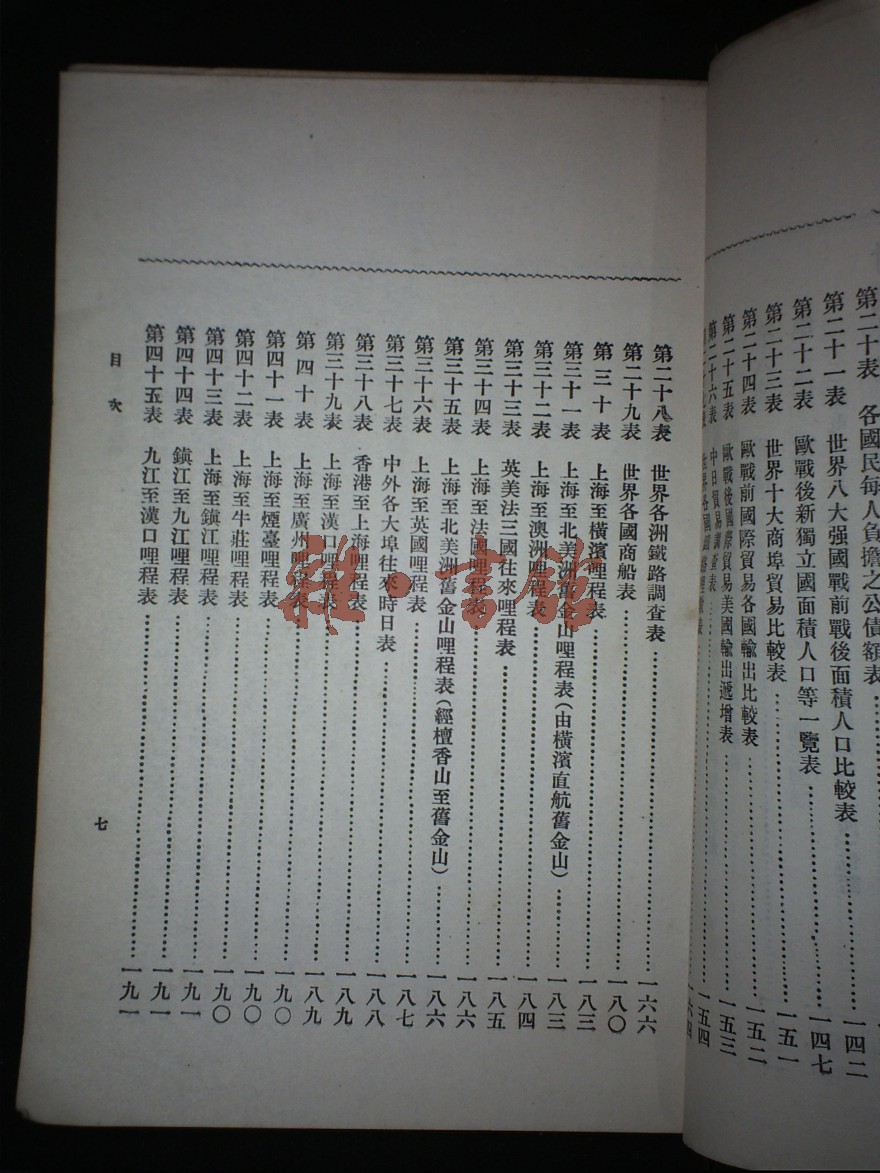 第二十表 各國民每人負擔之公債額表
第二十一表 世界八大强國戰前戰後面積人口比較表 一四二
第二十二表 歐戰後新獨立國面積人口等一覽表 一四七
第二十三表 世界十大商埠貿易比較表 一五一
第二十四表 歐戰前國際貿易各國輸出比較表 一五二
第二十五表 歐戰後國際貿易美國輸出遞增表 一五三
第二十六表 中日貿易調查表 一五四
第二十八表 世界各洲鐵路調查表 一六六
第二十九表 世界各國商船表 一八〇
第三十表 上海至橫濱哩程表 一八三
第三十一表 上海至北美洲舊金山哩程表(由橫濱直航舊金山) 一八三
第三十二表 上海至澳洲哩程表 一八四
第三十三表 英美法三國往來哩程表 一八五
第三十四表 上海至法國哩程表 一八六
第三十五表 上海至北美洲舊金山哩程表(經檀香山至舊金山) 一八六
第三十六表 上海至英國哩程表 一八七
第三十七表 中外各大埠往來時日表 一八八
第三十八表 香港至上海哩程表 一八九
第三十九表 上海至漢口哩程表 一八九
第四十表 上海至廣州哩程表 一九〇
第四十一表 上海至煙臺哩程表 一九〇
第四十二表 上海至牛莊哩程表 一九〇
第四十三表 上海至鎭江哩程表 一九一
第四十四表 鎭江至九江哩程表 一九一
第四十五表 九江至漢口哩程表 一九一
目次
七
雜·書館